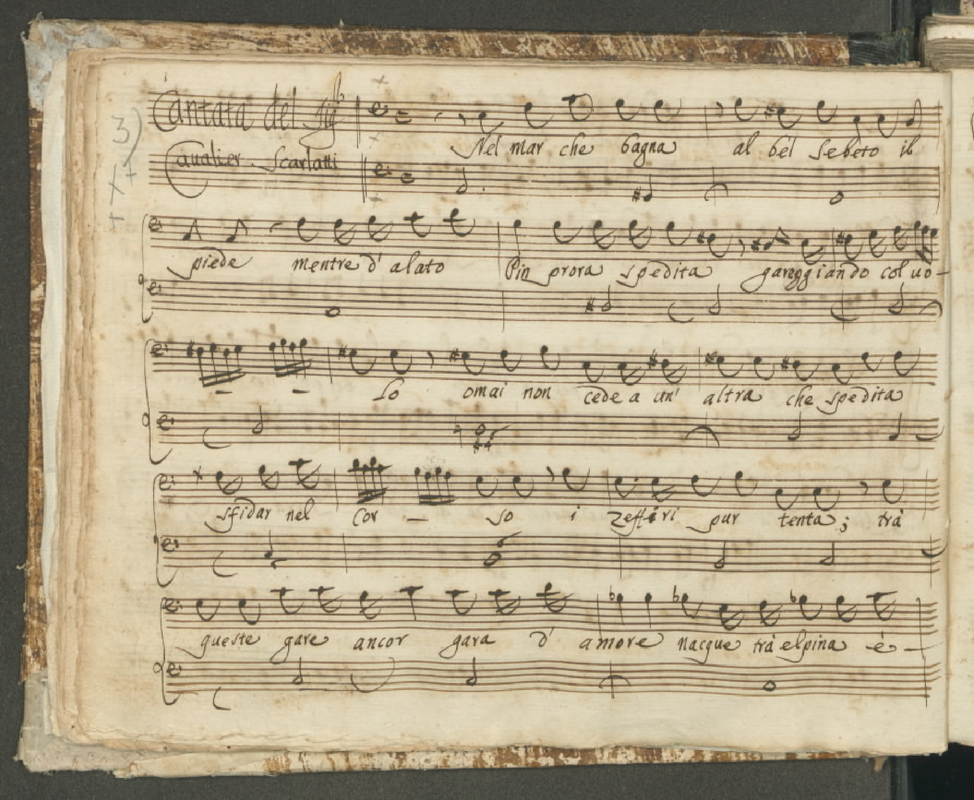 3)
Cantata del Sigr
Caualier Scarlatti
Nel mar che bagna al bel sebeto il
piede mentre d'alato Pin prora spedita gareggiando col uo-
lo omai non cede a un' altra che spedita
sfidar nel Cor - so i zeffiri pur tenta; trà
queste gare ancor gara d' amore nacque trà elpina è -